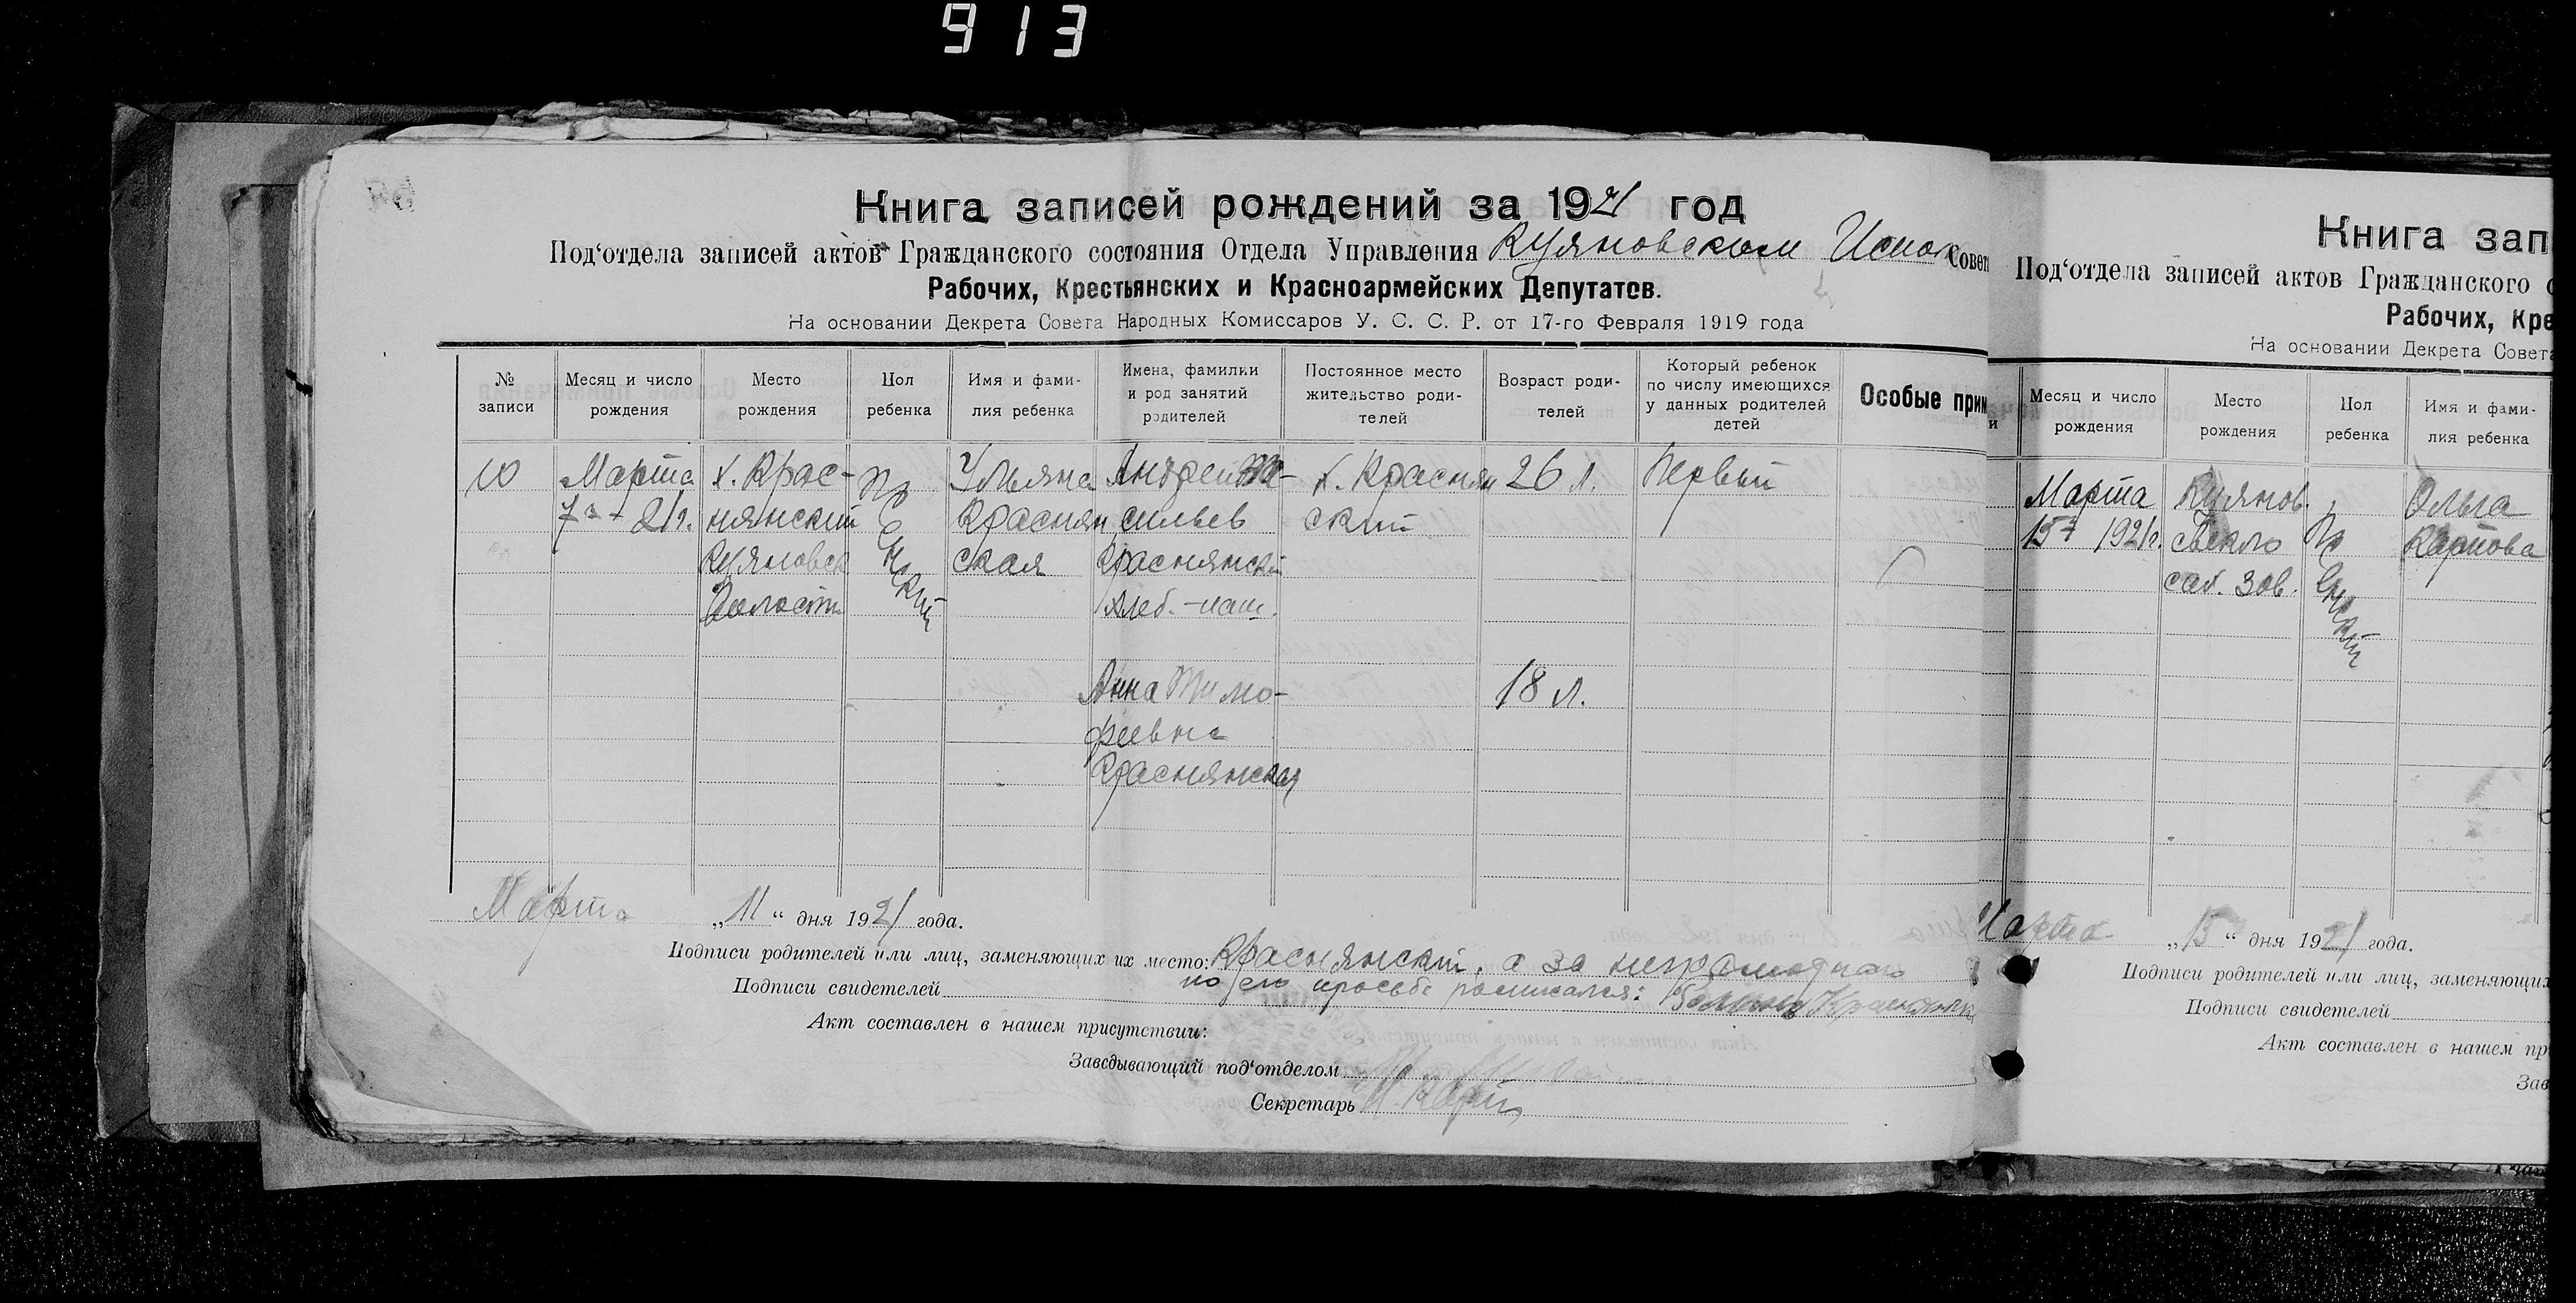 913
Книга записей рождений за 1921 год
Под‘отдела записей актов Гражданского состояния Отдела Управления Куяновском Испол Совет
Рабочих, Крестьянских и Красноармейских Депутатов.
На основании Декрета Совета Народных Комиссаров У. С. С. Р. от 17-го Февраля 1919 года
№ записи
Месяц и число рождения
Место рождения
Пол ребенка
Имя и фами-
лия ребенка
Имена, фамилии
и род занятий
родителей
Постоянное место
жительство роди-
телей
Возраст роди-
телей
Который ребенок
по числу имеющихся
у данных родителей
детей
Особые прим
10
Марта
7 21г.
х. Крас-
нянский
Куяновск
Волости
Женский
Ульяна
Краснян
ская
Андрей
сильев
Краснянский
хлеб.-паш.
х. Краснян
ский
26 л.
Первый
Анна Тимо-
феевна
Краснянская
18 л.
Марта „11“ дня 1921 года.
Подписи родителей или лиц, заменяющих их место: Краснянский, а за неграмотного
по его просьбе росписался:
Подписи свидетелей
Акт составлен в нашем присутствии:
Заведывающий под‘отделом
Секретарь
Книга зап
Под‘отдела записей актов Гражданского с
Рабочих, Кре
На основании Декрета Совета
и
Месяц и число
рождения
Место
рождения
Пол
ребенка
Имя и фами-
лия ребенка
Марта
15 1921г.
Куянов.
свекло
сах. зав.
Женский
Ольга
Карпова
Марта „15“ дня 1921 года.
Подписи родителей или лиц, заменяющих
Подписи свидетелей
Акт составлен в нашем пр
Зав